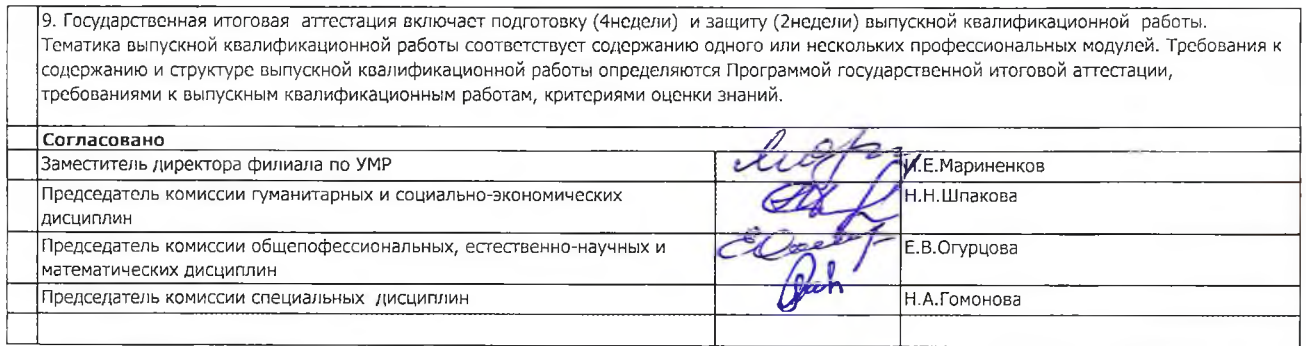 9. Государственная итоговая аттестация включает подготовку (4недели) и защиту (2недели) выпускной квалификационной работы.
Тематика выпускной квалификационной работы соответствует содержанию одного или нескольких профессиональных модулей. Требования к
содержанию и структуре выпускной квалификационной работы определяются Программой государственной итоговой аттестации,
требованиями к выпускным квалификационным работам, критериями оценки знаний.
Согласовано
Заместитель директора филиала по УМР И.Е.Мариненков
Председатель комиссии гуманитарных и социально-экономических
дисциплин Н.Н.Шпакова
Председатель комиссии общепофессиональных, естественно-научных и
математических дисциплин Е.В.Огурцова
Председатель комиссии специальных дисциплин Н.А.Гомонова